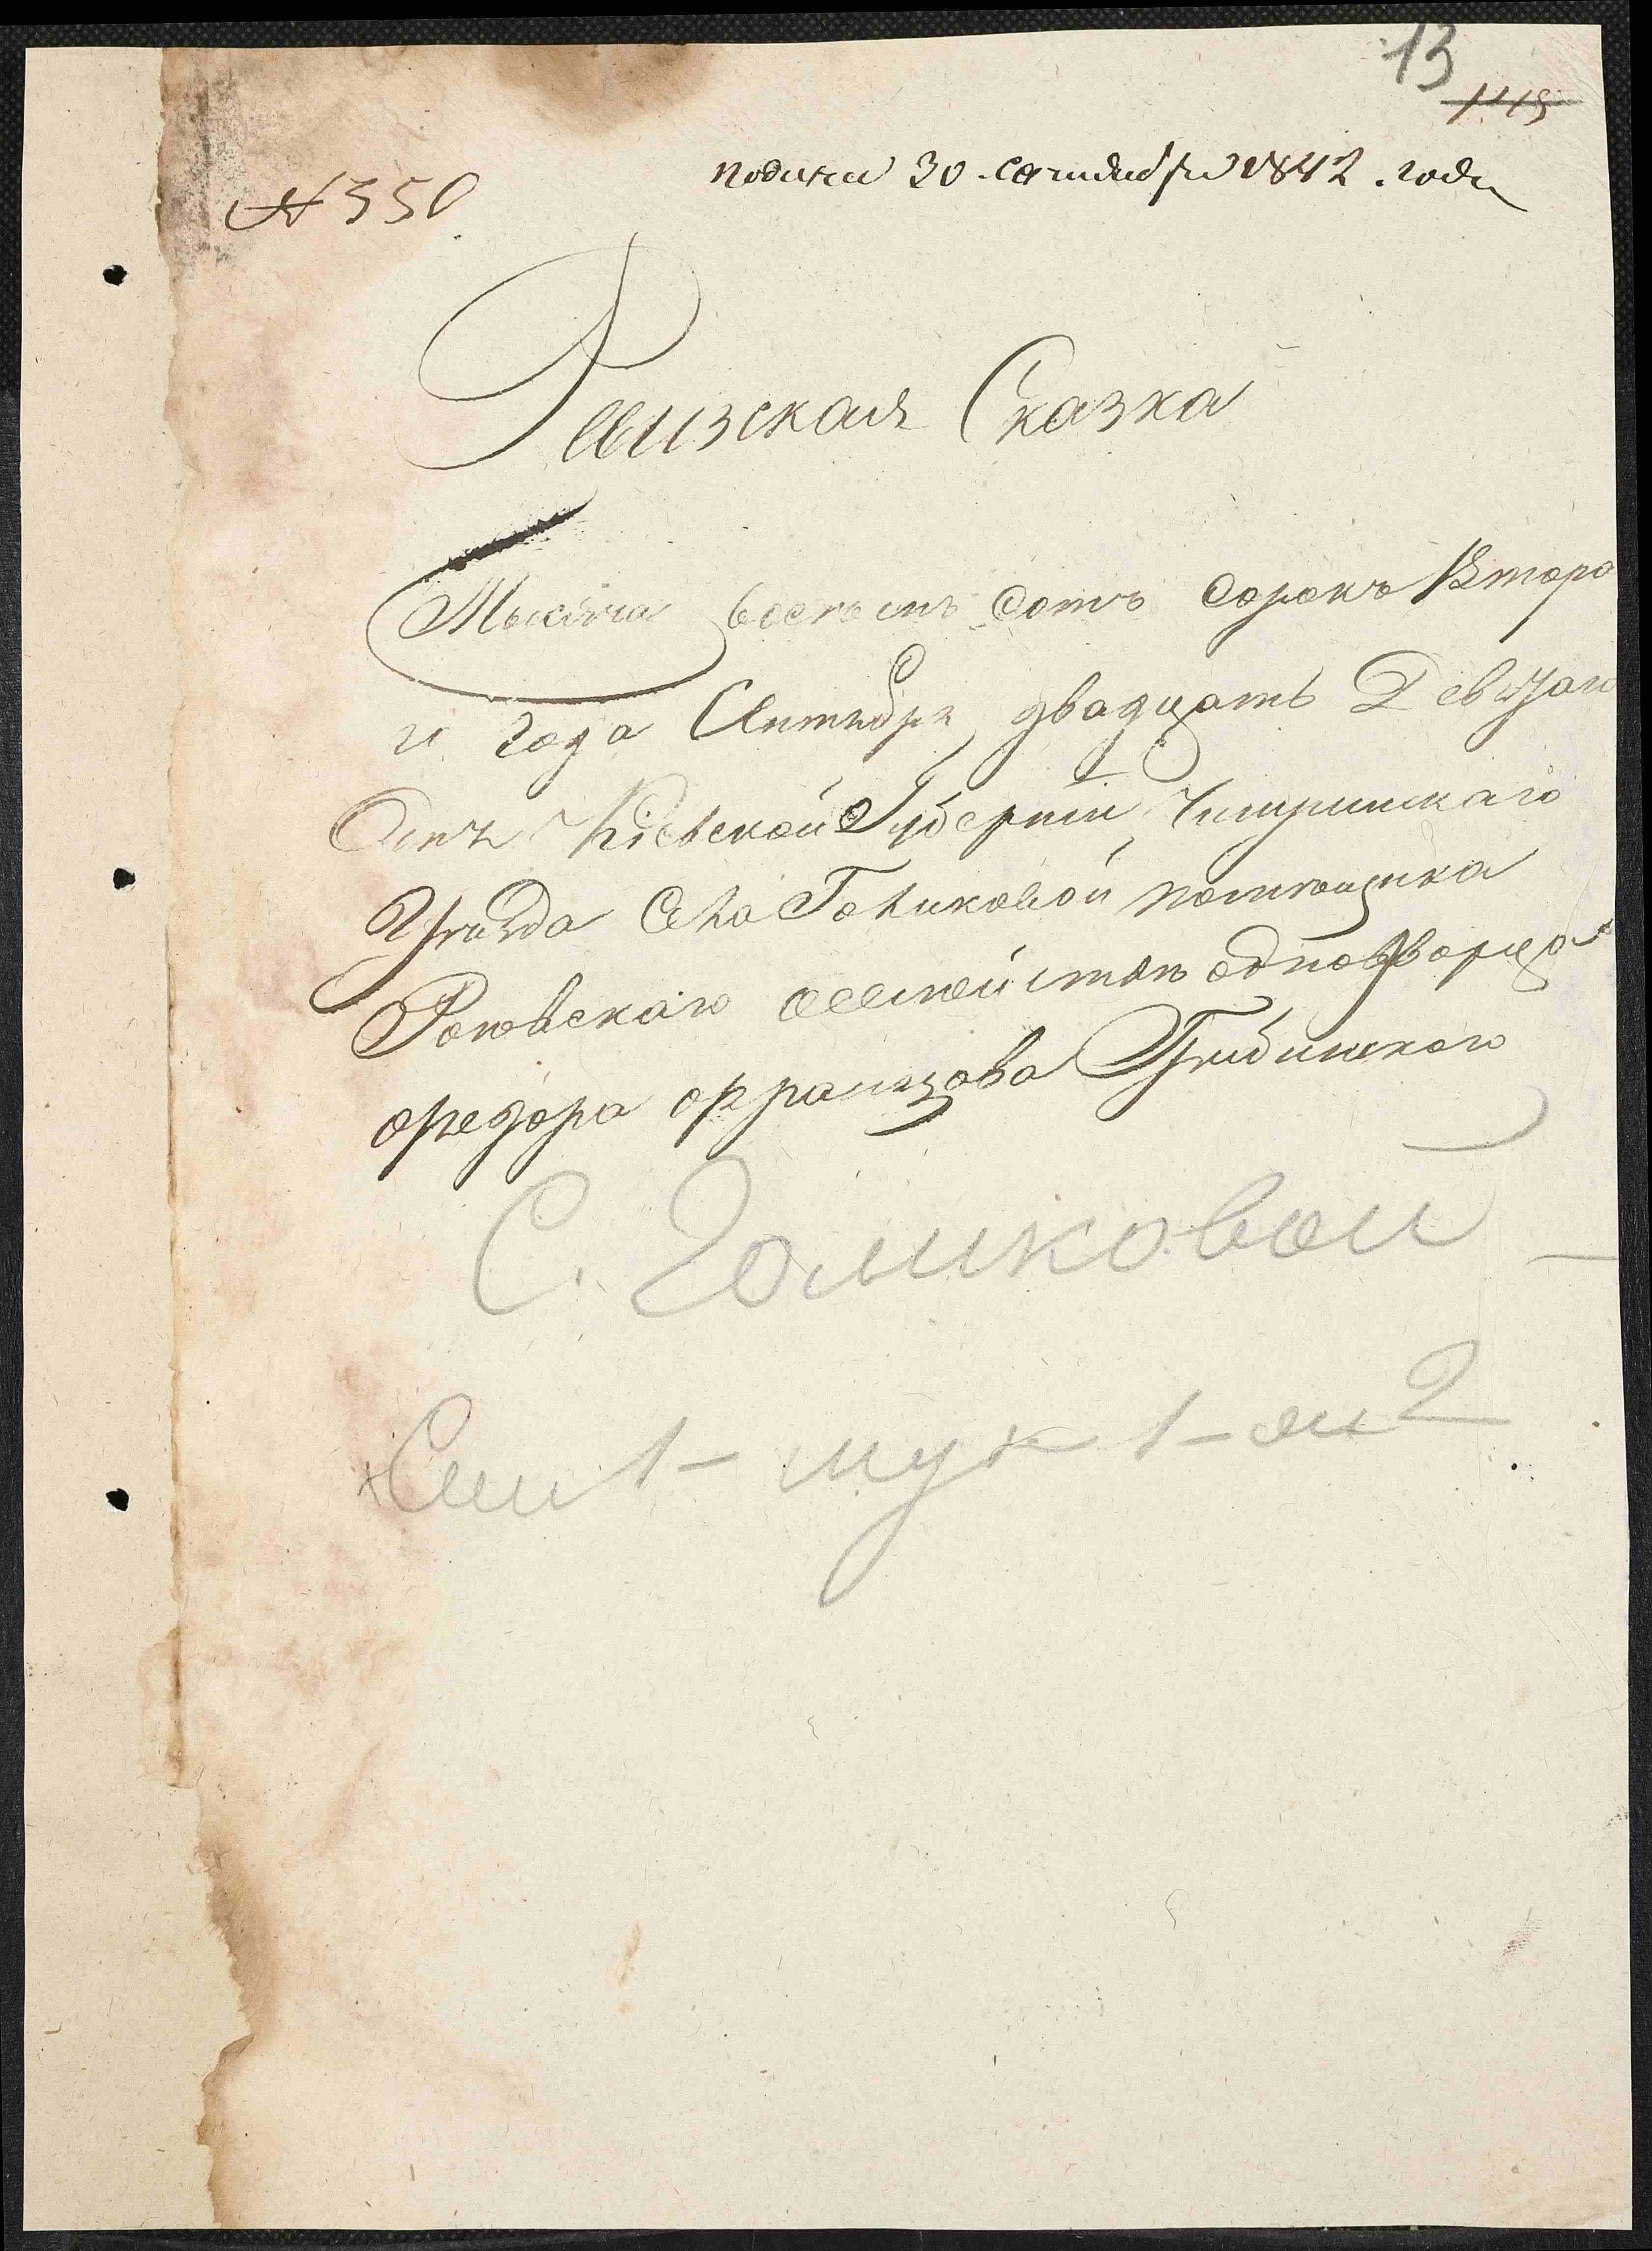 13
1145
подана 30 сентября 1842. года
№ 350
Ревизская Сказка
Тысяча восемь сотъ сорокъ Втора
го года Сентября двадцать Девятаго
Отъ Кіевской Губерніи Чигринскаго
Уезда Села Голиковой помещика
Роговскаго семейства однодворца
Федора Францова
С. Голиковой
Сем 1 - муж 1 - жен 2